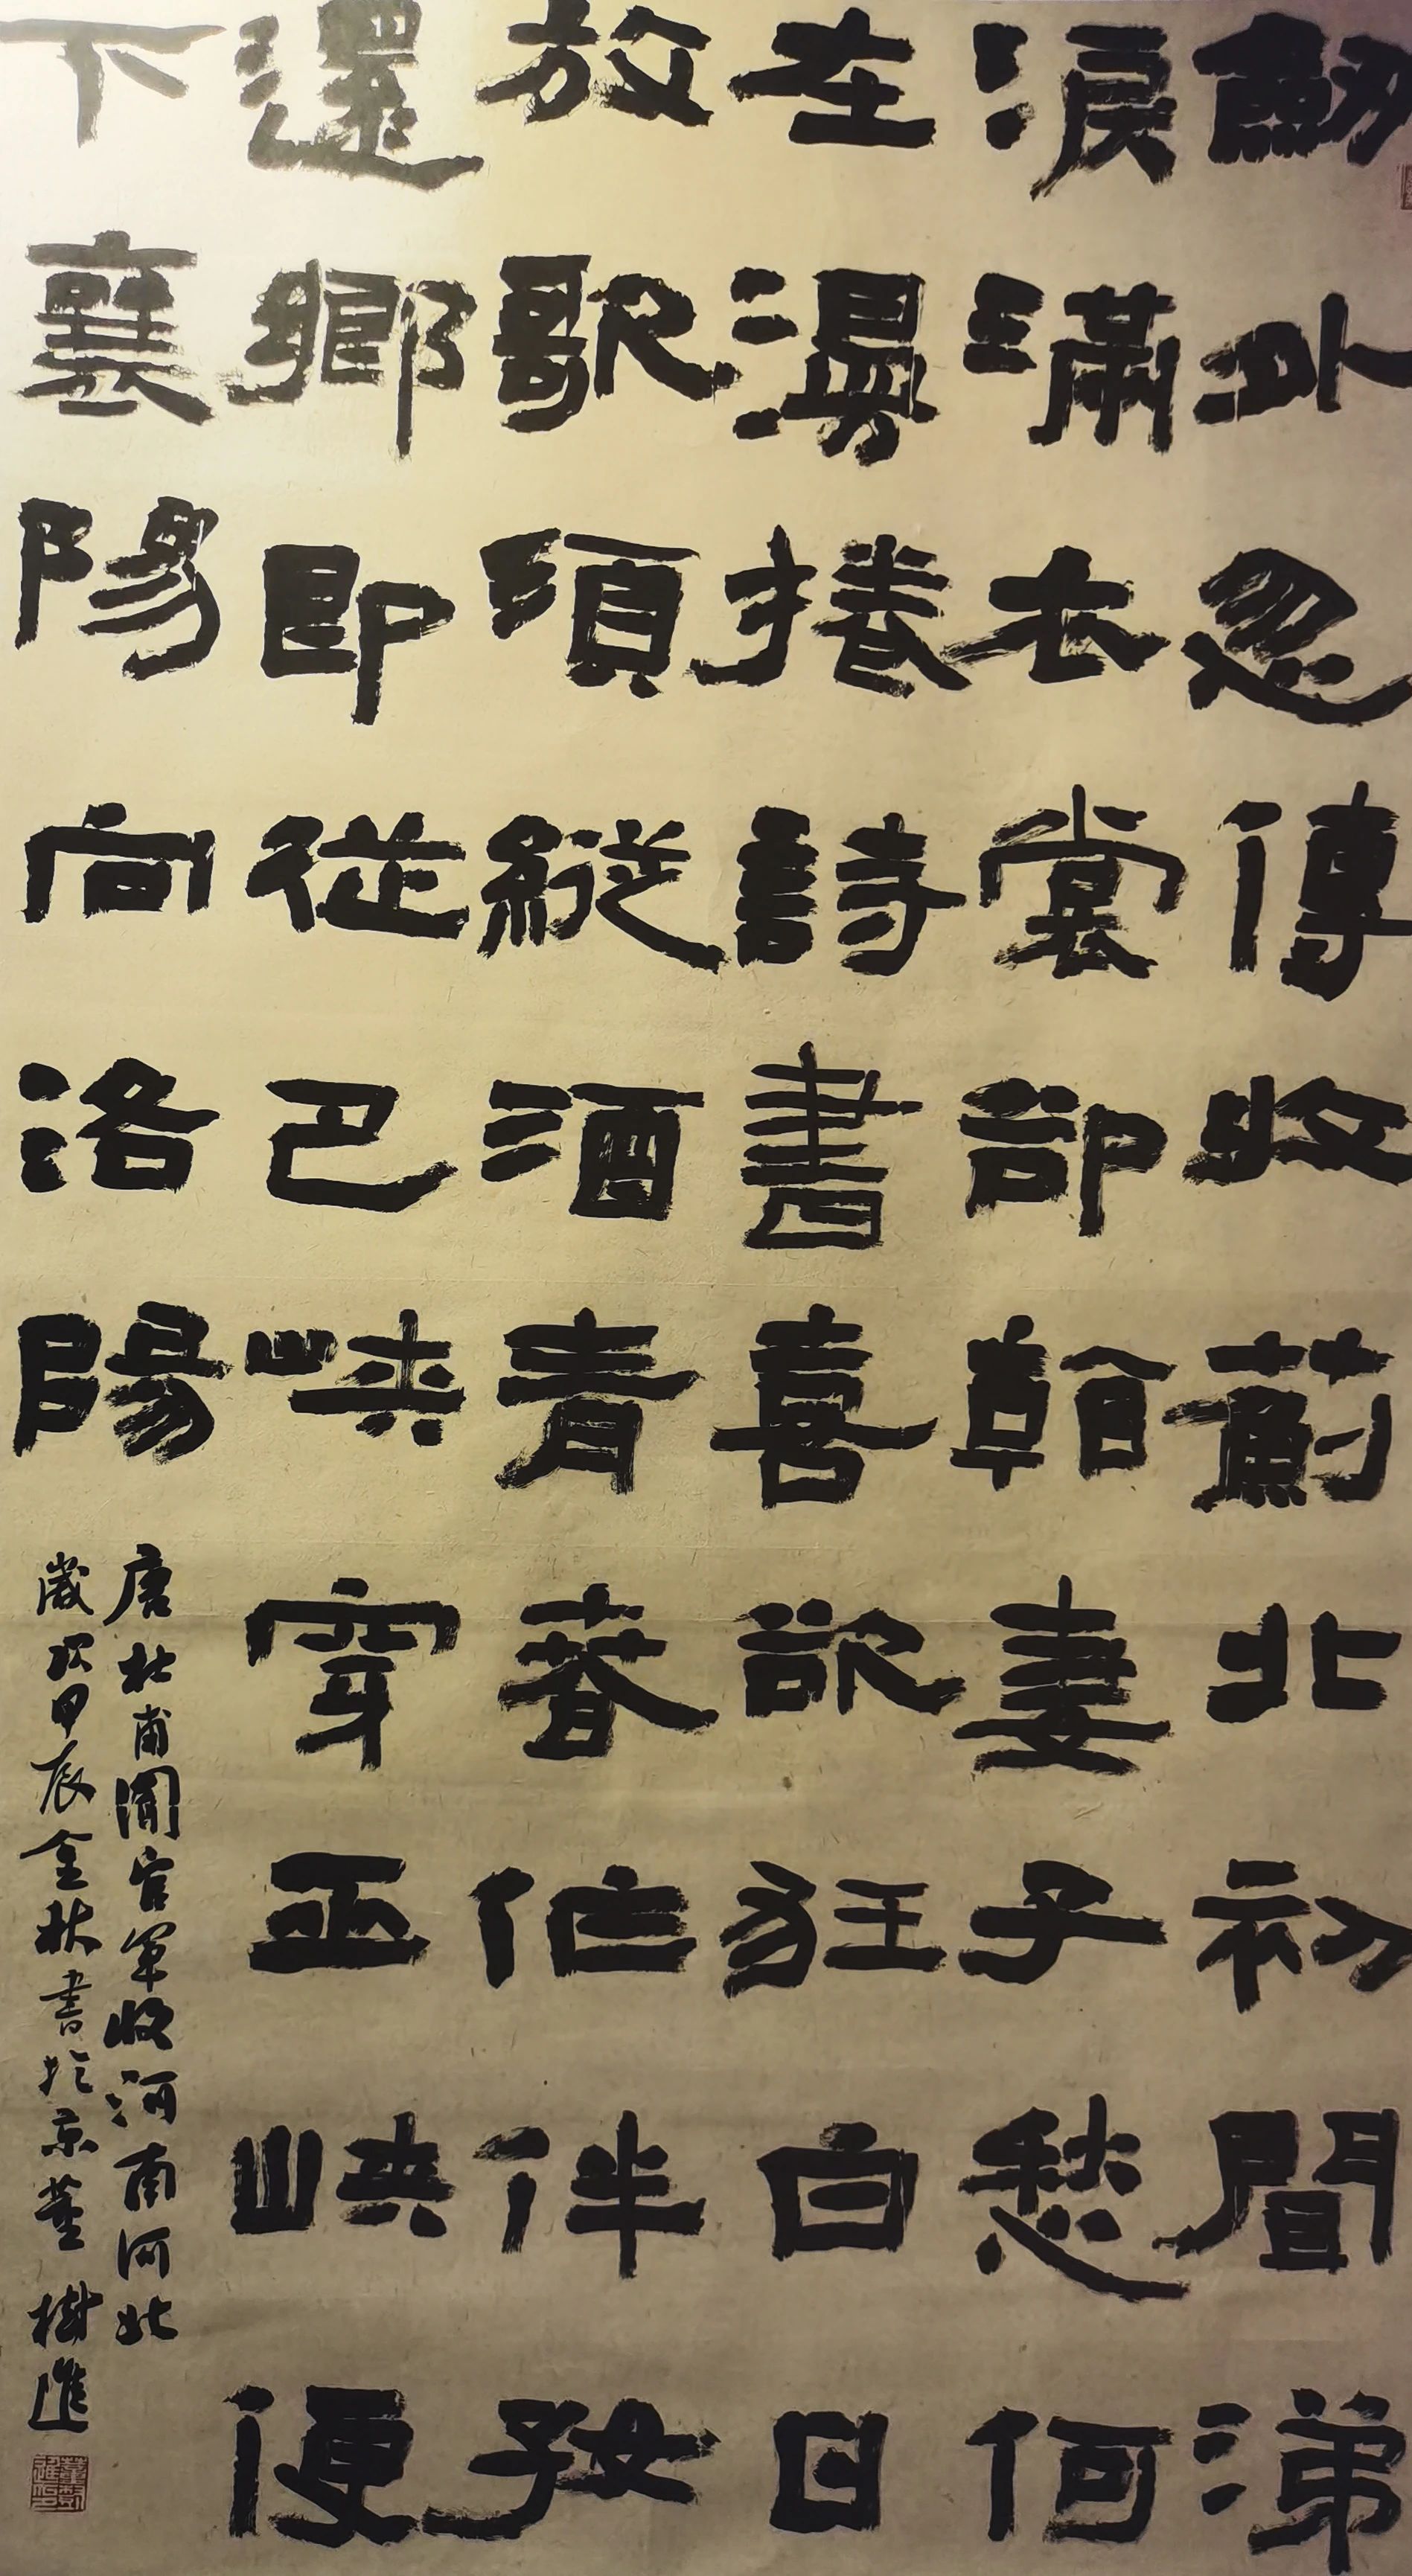 劒外忽傳收薊北初聞涕
淚滿衣裳卻看妻子愁何
在漫捲詩書喜欲狂白日
放歌須縱酒青春作伴好
還鄉即從巴峽穿巫峽便
下襄陽向洛陽
唐杜甫聞官軍收河南河北
歲次甲辰金秋書於京董樹進
董樹進印